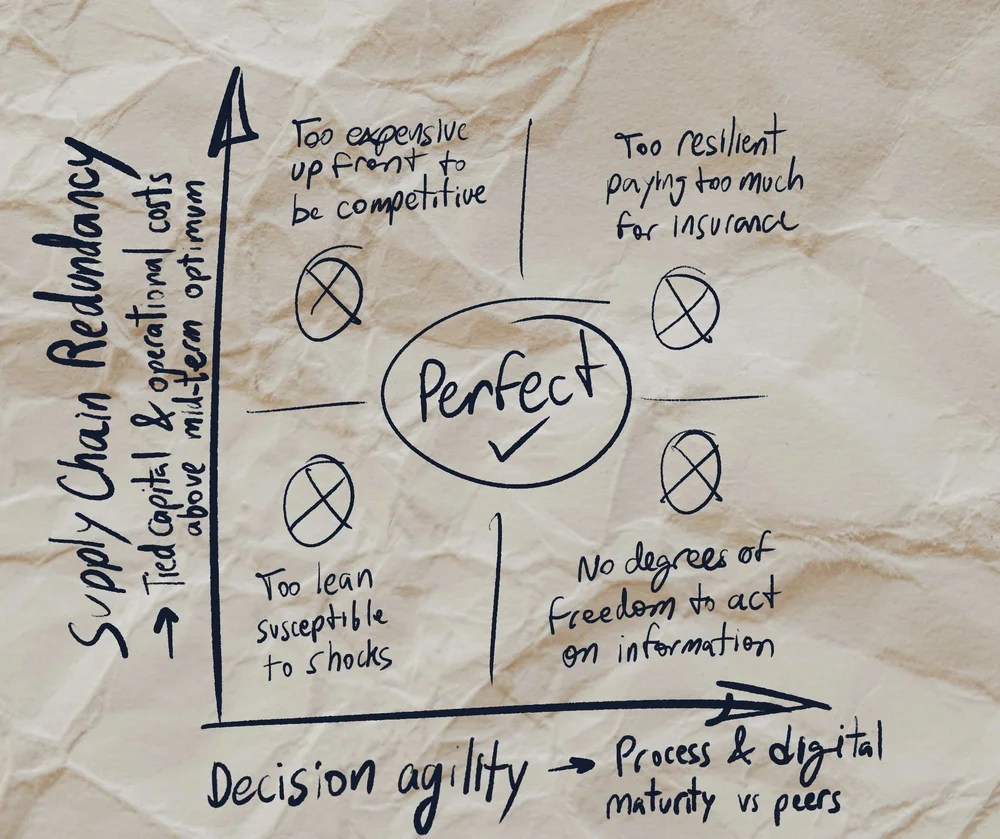 Too expensive
up front to
be competitive
Too resilient
paying too much
for insurance
Supply Chain Redundancy
→ Tied capital & operational costs
above mid-term optimum
Perfect
✓
Too lean
susceptible
to shocks
No degrees of
freedom to act
on information
Decision agility → Process & digital
maturity vs peers